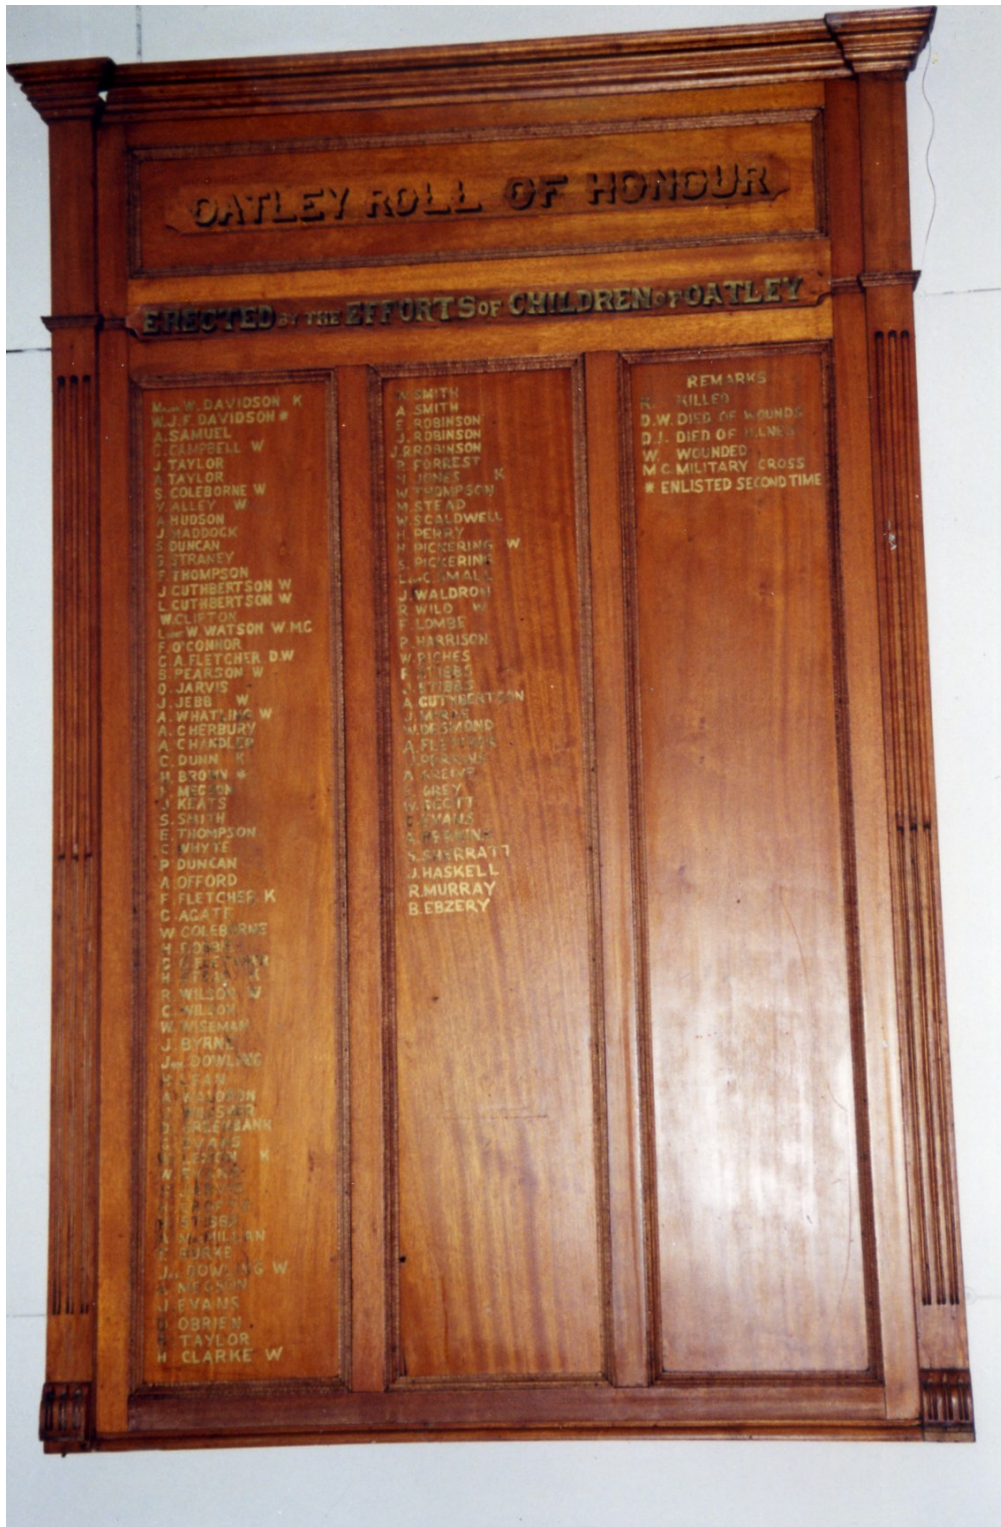 OATLEY ROLL OF HONOUR
ERECTED BY THE EFFORTS OF CHILDREN OF OATLEY
MAJOR W. DAVIDSON K
W.J.F. DAVIDSON *
A. SAMUEL
C. CAMPBELL W
J. TAYLOR
A. TAYLOR
S. COLEBORNE W
V. ALLEY W
A. HUDSON
J. HADDOCK
S. DUNCAN
G. STRANEY
F. THOMPSON
J. CUTHBERTSON W
L. CUTHBERTSON W
W. CLIFTON
LIEUT W. WATSON W. M.C
F. O'CONNOR
C. A. FLETCHER D.W
S. PEARSON W
O. JARVIS
J. JEBB W
A. WHATLING W
A. CHERBURY
A. CHANDLER
C. DUNN K
H. BROWN *
MEGSON
J. KEATS
S. SMITH
E. THOMPSON
C WHYTE
P DUNCAN
A OFFORD
F. FLETCHER K
C. AGATE
W COLEBORNE
H.
G. FLETCHER
H
R WILSON W
C. WILSON
W. WISEMAN
J. BYRNE
DOWLING
A WALDRON
GREENBANK
EVANS
K
W
STIBBS
McMILLAN
BURKE
DOWLING W
MEGSON
J EVANS
O'BRIEN
TAYLOR
H CLARKE W
SMITH
A. SMITH
E. ROBINSON
J. ROBINSON
J.R. ROBINSON
FORREST
JONES K
W. THOMPSON
M. STEAD
W. S CALDWELL
H. PERRY
H. PICKERING W
S. PICKERING
SMALL
J. WALDRON
R. WILD W
F. LOMBE
P. HARRISON
W. RICHES
F. STIBBS
J. STIBBS
A CUTHBERTSON
J.
W. DESMOND
A. FLETCHER
PERKINS
A. GREIVE
GREY
W. SCOTT
EVANS
S. SHERRATT
J. HASKELL
R. MURRAY
B. EBZERY
REMARKS
K. KILLED
D.W. DIED OF WOUNDS
D.I. DIED OF ILLNESS
W. WOUNDED
M C. MILITARY CROSS
* ENLISTED SECOND TIME